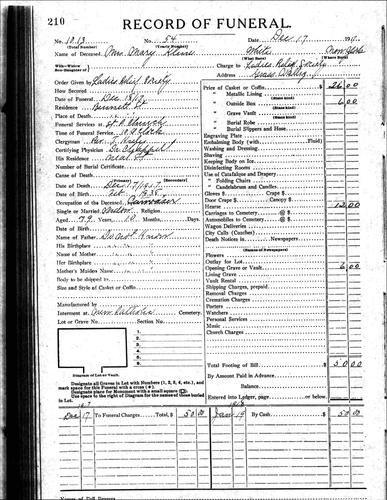 210
RECORD OF FUNERAL.
No. 1013 No. 54 Date Dec 17 191
(Total Number) (Yearly Number)
Name of Deceased Mrs. Mary White
Wife—Widow Son—Daughter of
Charge to Ladies Relief Society
Address Grass Valley
Order Given by Ladies Relief Society
How Secured
Date of Funeral Dec 18/17
Residence Bennett St
Place of Death
Funeral Services at Church
Time of Funeral Service 10 A Clock
Clergyman Rev.
Certifying Physician Dr.
His Residence Neal St
Number of Burial Certificate
Cause of Death
(Primary) (Secondary)
Date of Death Dec 17/1917
Date of Birth Feb 1838
Occupation of the Deceased
Single or Married Widow Religion
Aged 79 Years, 10 Months, Days
Name of Father Do not Know
His Birthplace "
Name of Mother "
Her Birthplace "
Mother's Maiden Name
Body to be shipped to
Size and Style of Casket or Coffin
Manufactured by
Interment at Cemetery
Lot or Grave No. Section No.
1
2
3
4
5
6
Diagram of Lot or Vault.
Designate all Graves in Lot with Numbers (1, 2, 3, 4, etc.), and
mark space for this Funeral with a cross (✚)
Designate place for Monument with a small square (□).
Use space to the right of Diagram for names of those buried
in Lot.
Price of Casket or Coffin $ 26 00
(State Kind)
" Metallic Lining
" Outside Box 6 00
(State Kind)
" Grave Vault
(State Kind)
" Burial Robe
(State Kind)
" Burial Slippers and Hose
Engraving Plate
Embalming Body (with Fluid)
Washing and Dressing
Shaving
Keeping Body on Ice
Disinfecting Rooms
Use of Catafalque and Drapery
" Folding Chairs
" Candelabrum and Candles
Gloves $ Crape $
Door Crape $ Candy $
Hearse 12 00
Carriages to Cemetery @ $
Automobiles to Cemetery @ $
Wagon Deliveries
City Calls (Coaches)
Death Notices in Newspapers
(Names of Newspapers)
Flowers
Outlay for Lot
Opening Grave or Vault 6 00
Lining Grave
Vault Rental
Shipping Charges, prepaid
Removal Charges
Cremation Charges
Porters
Watchers
Personal Services
Music
Church Charges
Total Footing of Bill $ 50 00
By Amount Paid in Advance
Balance
Entered into Ledger, page or below.
Dec 17 To Funeral Charges Total, $ 50 00 Jan 19 By Cash $ 50 00